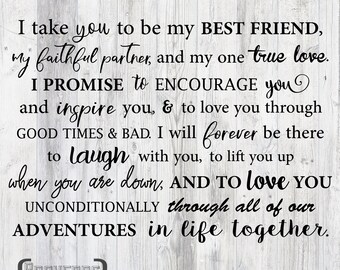 I take you to be my BEST FRIEND,
my faithful partner, and my one true love.
I PROMISE to ENCOURAGE you
and inspire you, & to love you through
GOOD TIMES & BAD. I will forever be there
to laugh with you, to lift you up
when you are down, AND TO love YOU
UNCONDITIONALLY through all of our
ADVENTURES in life together.